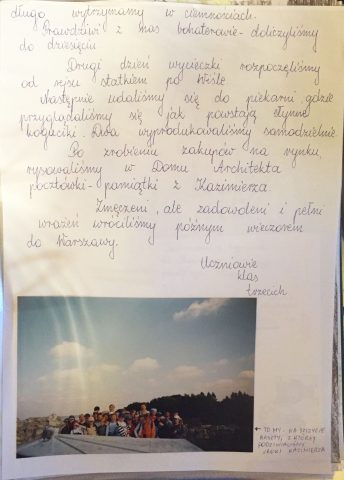 długo wytrzymamy w ciemnościach.
Prawdziwi z nas bohaterowie - doliczyliśmy
do dziesięciu
Drugi dzień wycieczki rozpoczęliśmy
od rejsu statkiem po Wiśle.
Następnie udaliśmy się do piekarni gdzie
przyglądaliśmy się jak powstają słynne
koguciki. Dwa wyprodukowaliśmy samodzielnie.
Po zrobieniu zakupów na rynku
rysowaliśmy w Domu Architekta
pocztówki - pamiątki z Kazimierza.
Zmęczeni, ale zadowoleni i pełni
wrażeń wróciliśmy późnym wieczorem
do Warszawy.
Uczniowie
klas
trzecich
← TO MY - NA SZCZYCIE
BASZTY, Z KTÓREJ
PODZIWIALIŚMY
UROKI KAZIMIERZA